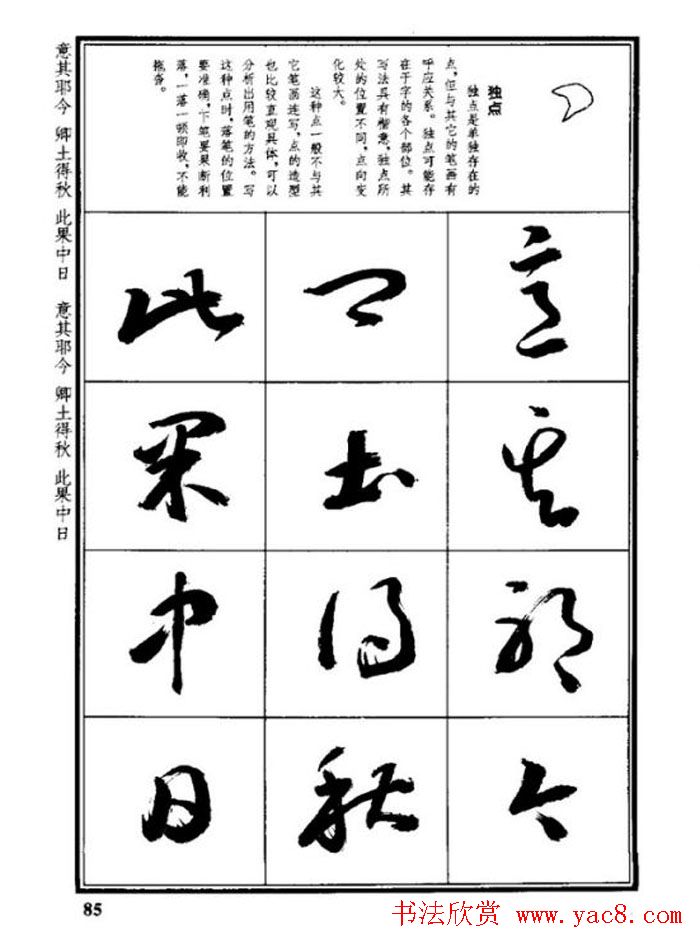 独点
独点是单独存在的
点，但与其它的笔画有
呼应关系。独点可能存
在于字的各个部位。其
写法具有楷意，独点所
处的位置不同，点向变
化较大。
这种点一般不与其
它笔画连写，点的造型
也比较直观具体，可以
分析出用笔的方法。写
这种点时，落笔的位置
要准确，下笔要果断利
落，一落一顿即收，不能
拖沓。
意其耶今
卿土得秋
此果中日
意其耶今 卿土得秋 此果中日 意其耶今 卿土得秋 此果中日
85
书法欣赏 www.yac8.com